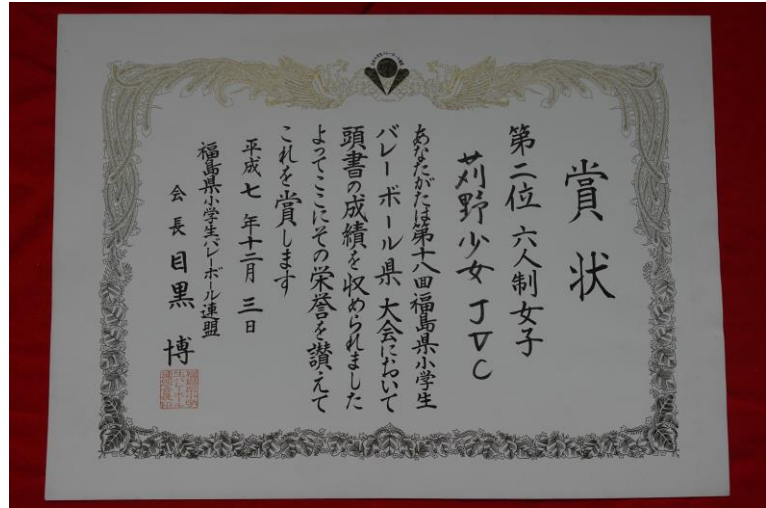 賞状
第二位 六人制女子
苅野少女JVC
あなたがたは第十八回福島県小学生
バレーボール県大会において
頭書の成績を収められました
よってここにその栄誉を讃えて
これを賞します
平成七年十二月三日
福島県小学生バレーボール連盟
会長 目黒 博